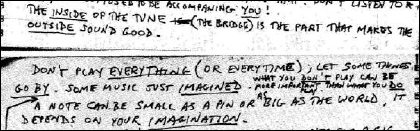 SED TO BE ACCOMPANYING YOU! DON'T LISTEN TO
THE INSIDE OF THE TUNE (THE BRIDGE) IS THE PART THAT MAKES THE
OUTSIDE SOUND GOOD.
DON'T PLAY EVERYTHING (OR EVERYTIME); LET SOME THINGS
GO BY. SOME MUSIC JUST IMAGINED. WHAT YOU DON'T PLAY CAN BE
MORE IMPORTANT THAN WHAT YOU DO PLAY
A NOTE CAN BE SMALL AS A PIN OR AS BIG AS THE WORLD, IT
DEPENDS ON YOUR IMAGINATION.